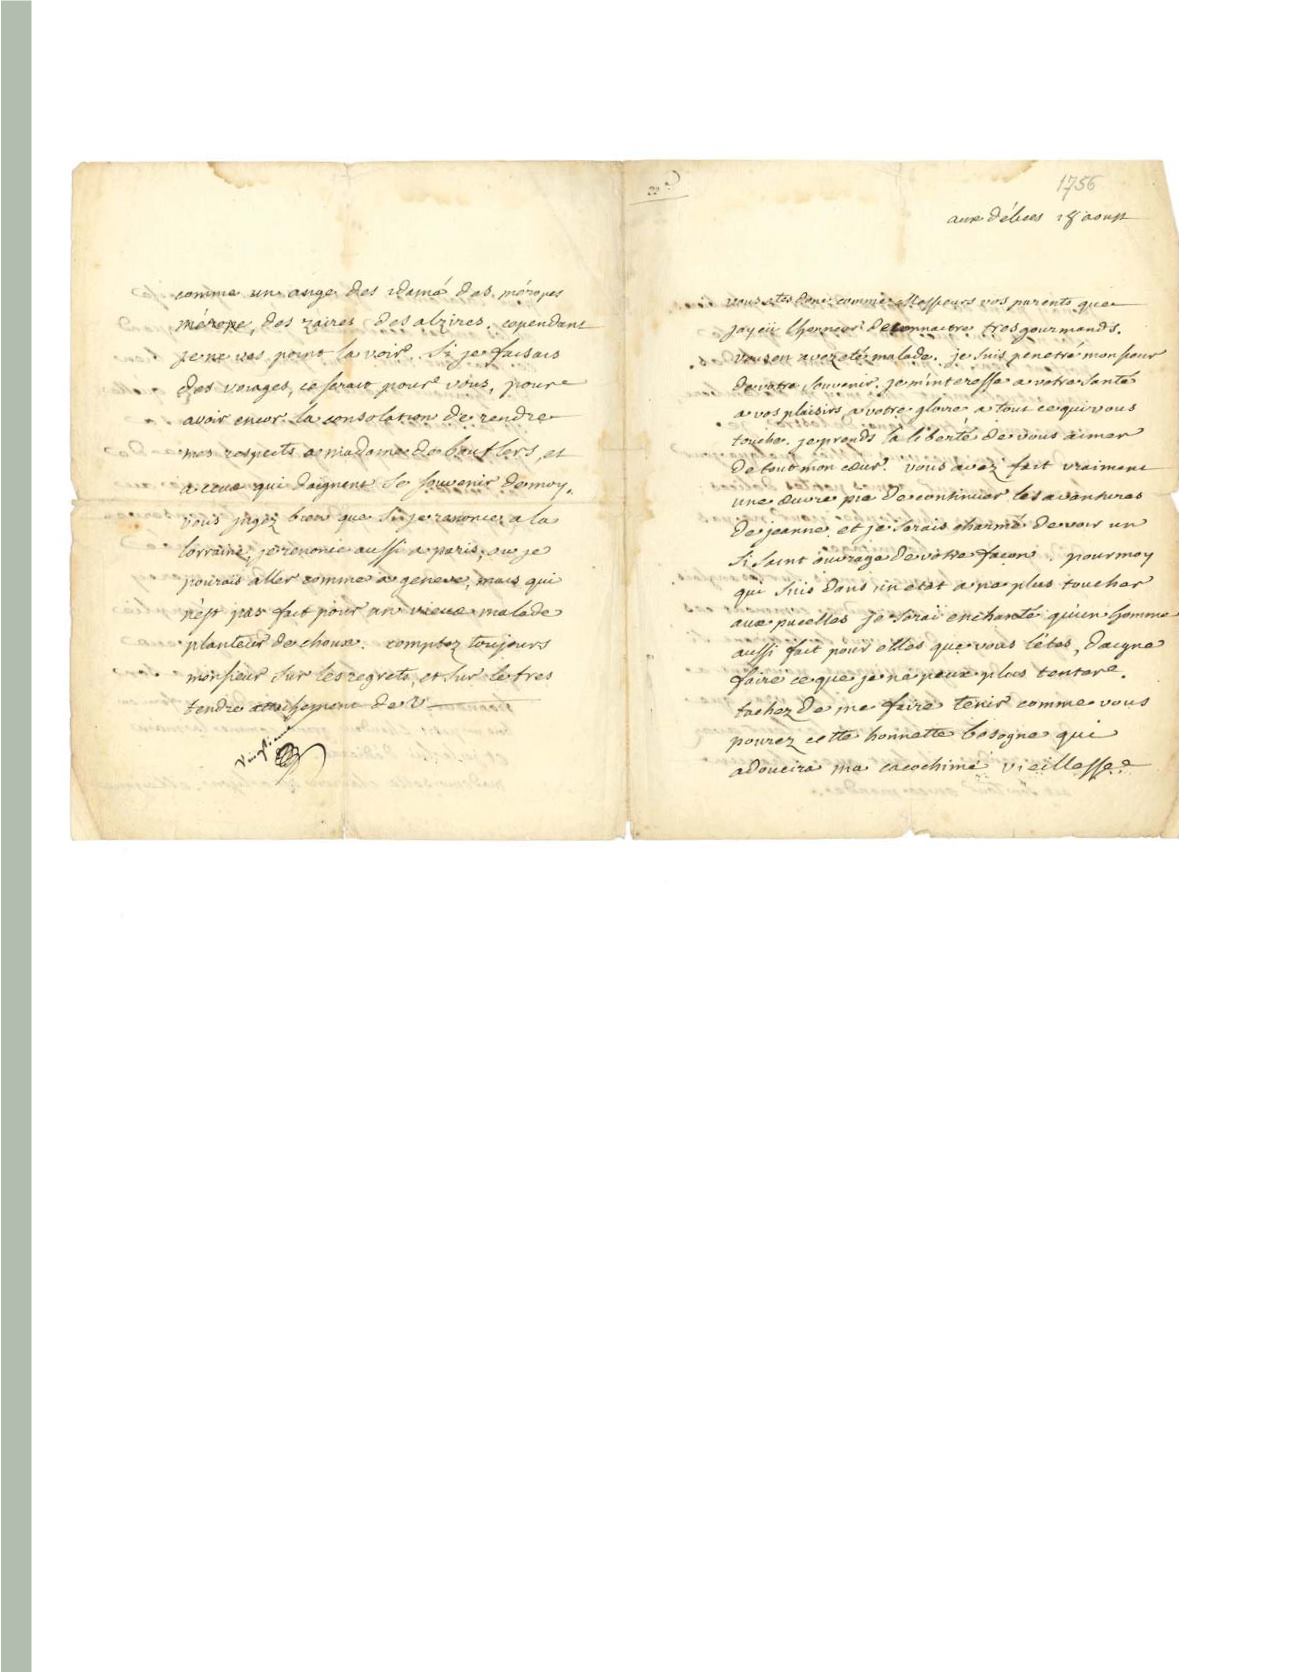 1756
aux délices 18 aoust
vous etes donc comme Messieurs vos parents que
jay eü lhonneur de connaitre tres gourmands.
vous en avez eté malade. je suis penetré monsieur
de votre souvenir. je m'interesse a votre santé
a vos plaisirs, a votre gloire a tout ce qui vous
touche. je prends la liberté de vous aimer
de tout mon coeur. vous avez fait vraiment
une oeuvre pie de continuer les avantures
de jeanne. et je serais charmé de voir un
si saint ouvrage de votre façon. pour moy
qui suis dans un etat a ne plus toucher
aux pucelles je serai enchanté qu'un homme
aussi fait pour elles que vous l'etes, daigne
faire ce que je ne peux plus tenter.
tachez de me faire tenir comme vous
pourez cette honnette besogne qui
adoucira ma cacochime vieillesse.
comme un ange des idamé des méropes
mérope, des zaires des alzires. cependant
je ne vas point la voir. Si je faisais
des voiages, ce serait pour vous, pour
avoir encor la consolation de rendre
mes respects a madame de bouflers, et
a ceux qui daignent se souvenir de moy.
vous jugez bien que si je renonce a la
lorraine, je renonce aussi a paris, ou je
pourais aller comme a geneve, mais qui
n'est pas fait pour un vieux malade
planteur de choux. comptez toujours
monsieur sur les regrets, et sur le tres
tendre attachement de V